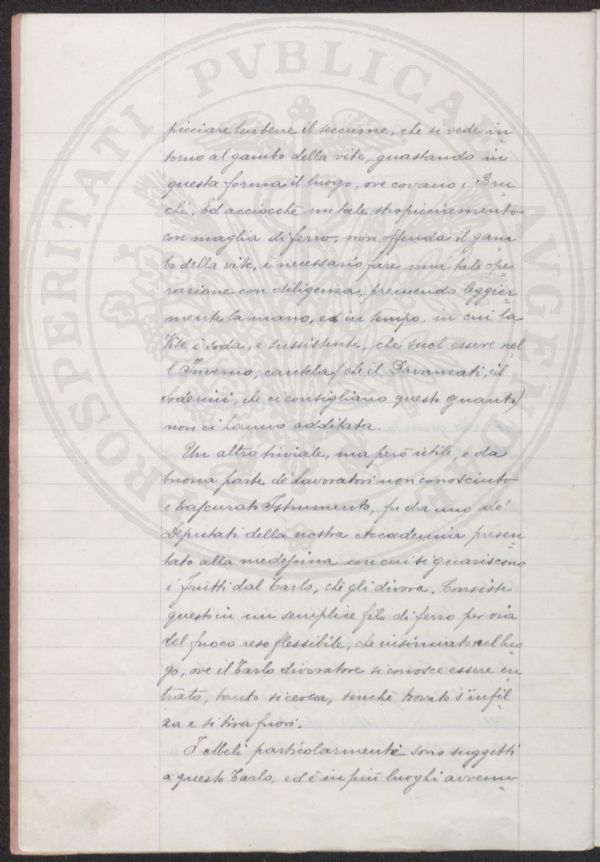 picciare ben bene il seccume, che si vede in-
torno al gambo della vite, guastando in
questa forma il luogo, ove covano i Bru-
chi. Ed acciocchè un tale stropicciamento
con maglia di ferro, non offenda il gam-
bo della vite, è necessario fare una tale ope-
razione con diligenza, premendo leggier-
mente la mano, ed in tempo, in cui la
Vite è soda, e sussistente, che suol essere nel
l'Inverno; cautela (che il Davanzati, e il
Soderini, che ci consigliano questo guanto)
non ci hanno additata.
Un altro triviale, ma però utile, e da
buona parte de' Lavoratori non conosciuto
e trascurato Istrumento, fu da uno de'
Deputati della nostra Accademia presen-
tato alla medesima con cui si guariscono
i frutti dal Tarlo, che gli divora. Consiste
questo in un semplice filo di ferro per via
del fuoco reso flessibile, che insinuato nel luo
go, ove il Tarlo divoratore si conosce essere en
trato, tanto si cerca, sinchè trovato s'infil-
za e si tira fuori.
I Meli particolarmente sono suggetti
a questo Tarlo, ed è in più luoghi avvenu-
PROSPERITATI PVBLICAE AVGENDAE